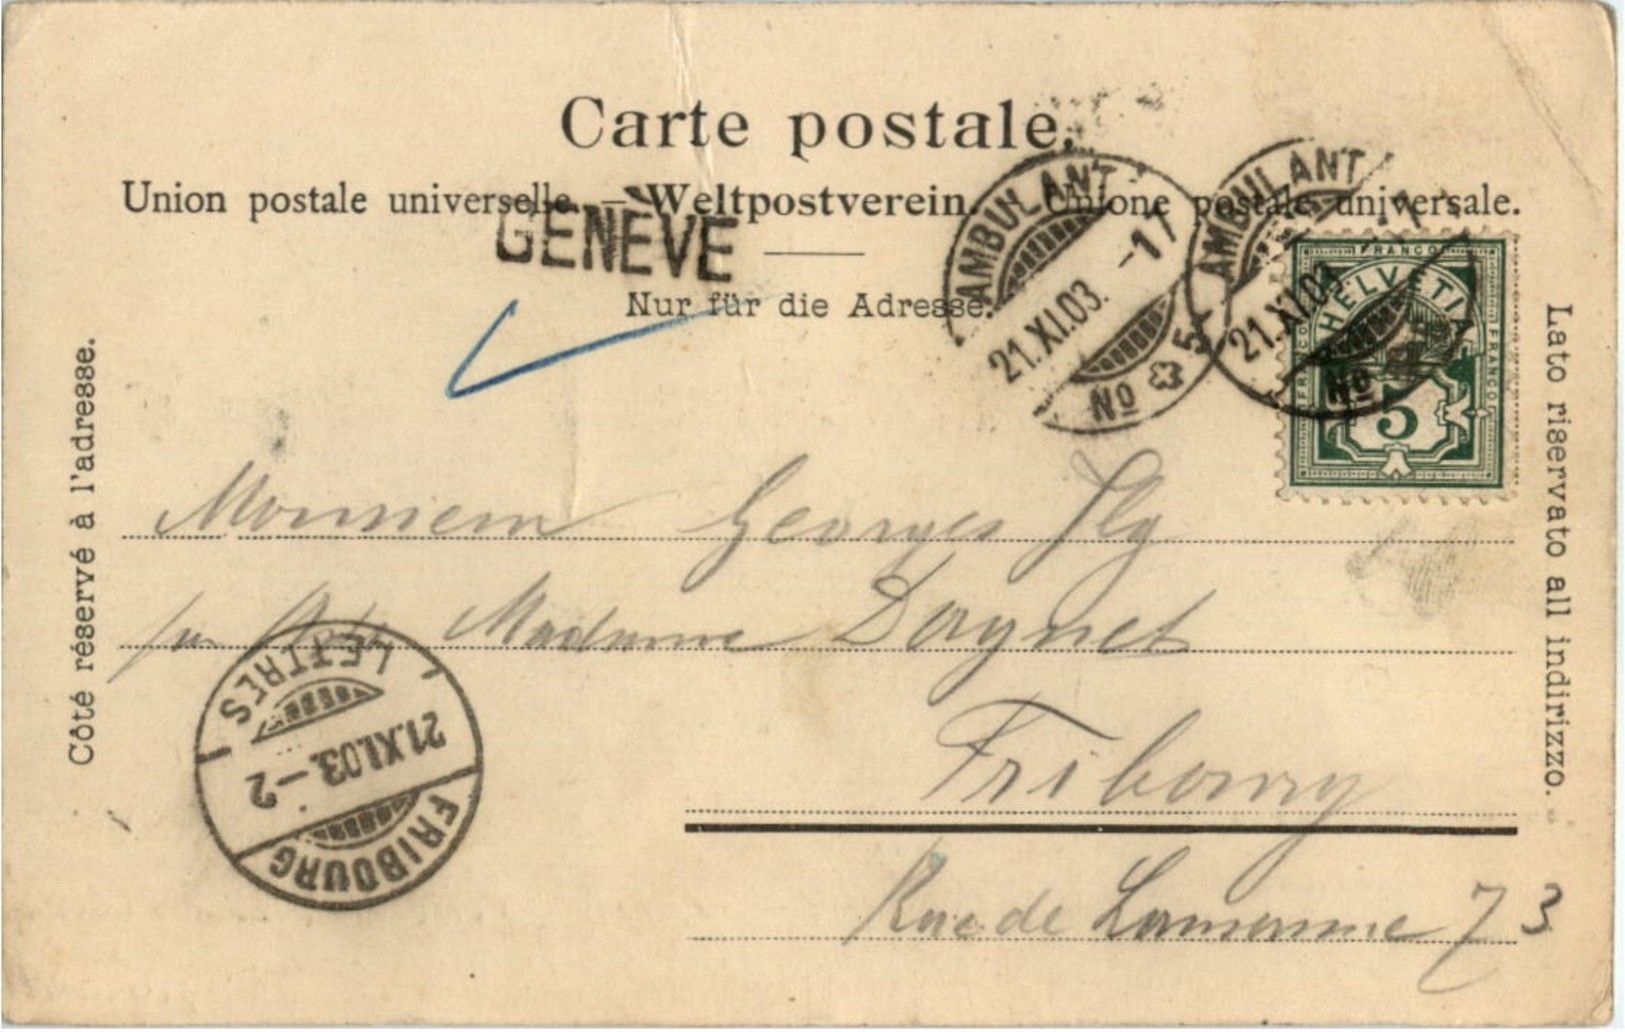 Carte postale.
Union postale universelle. — Weltpostverein. — Unione postale universale.
GENÈVE
Nur für die Adresse.
Côté réservé à l'adresse.
Lato riservato all indirizzo.
AMBULANT
21.XI.03.-17
No 5
AMBULANT
21.XI.03.-17
No
FRANCO
HELVETIA
FRANCO
FRANCO
5
Monsieur Georges Ilg
Madame Dagnet
Fribourg
Rue de Lausanne 73
LETTRES
21.XI.03.-2
FRIBOURG